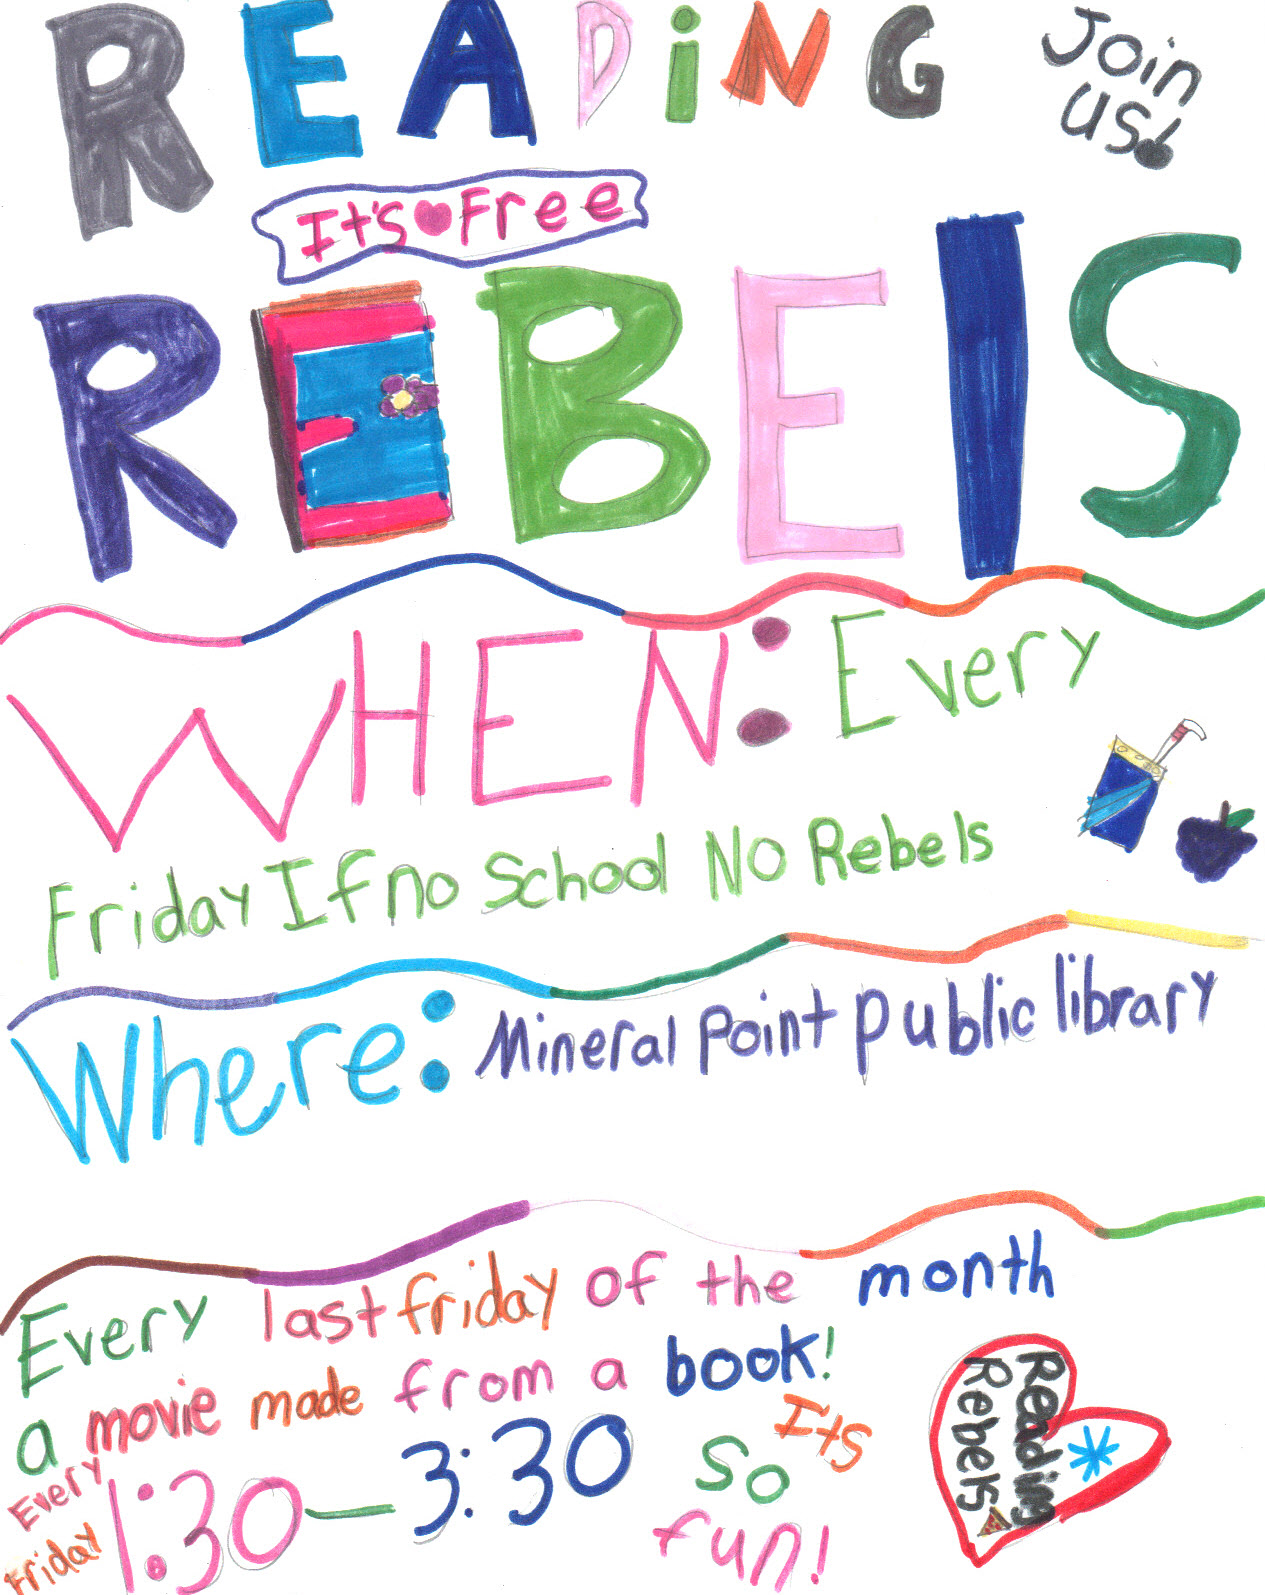 READiNG
Join
us!
It's Free
REBElS
WHEN: Every
Friday If no School No Rebels
Where: Mineral Point public library
Every last friday of the month
a movie made from a book!
Every
Friday
1:30—3:30
Its
So
fun!
Reading
Rebels